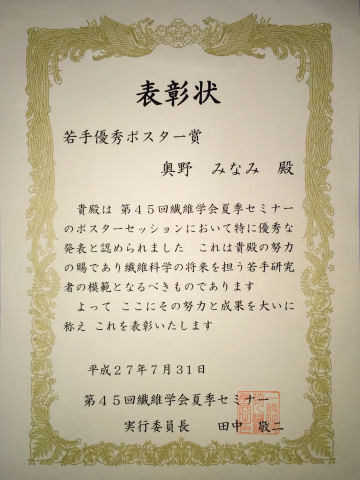 表彰状
若手優秀ポスター賞
奥野 みなみ 殿
貴殿は 第45回繊維学会夏季セミナー
のポスターセッションにおいて特に優秀な
発表と認められました これは貴殿の努力
の賜であり繊維科学の将来を担う若手研究
者の模範となるべきものであります
よって ここにその努力と成果を大いに
称え これを表彰いたします
平成27年7月31日
第45回繊維学会夏季セミナー
実行委員長 田中 敬二